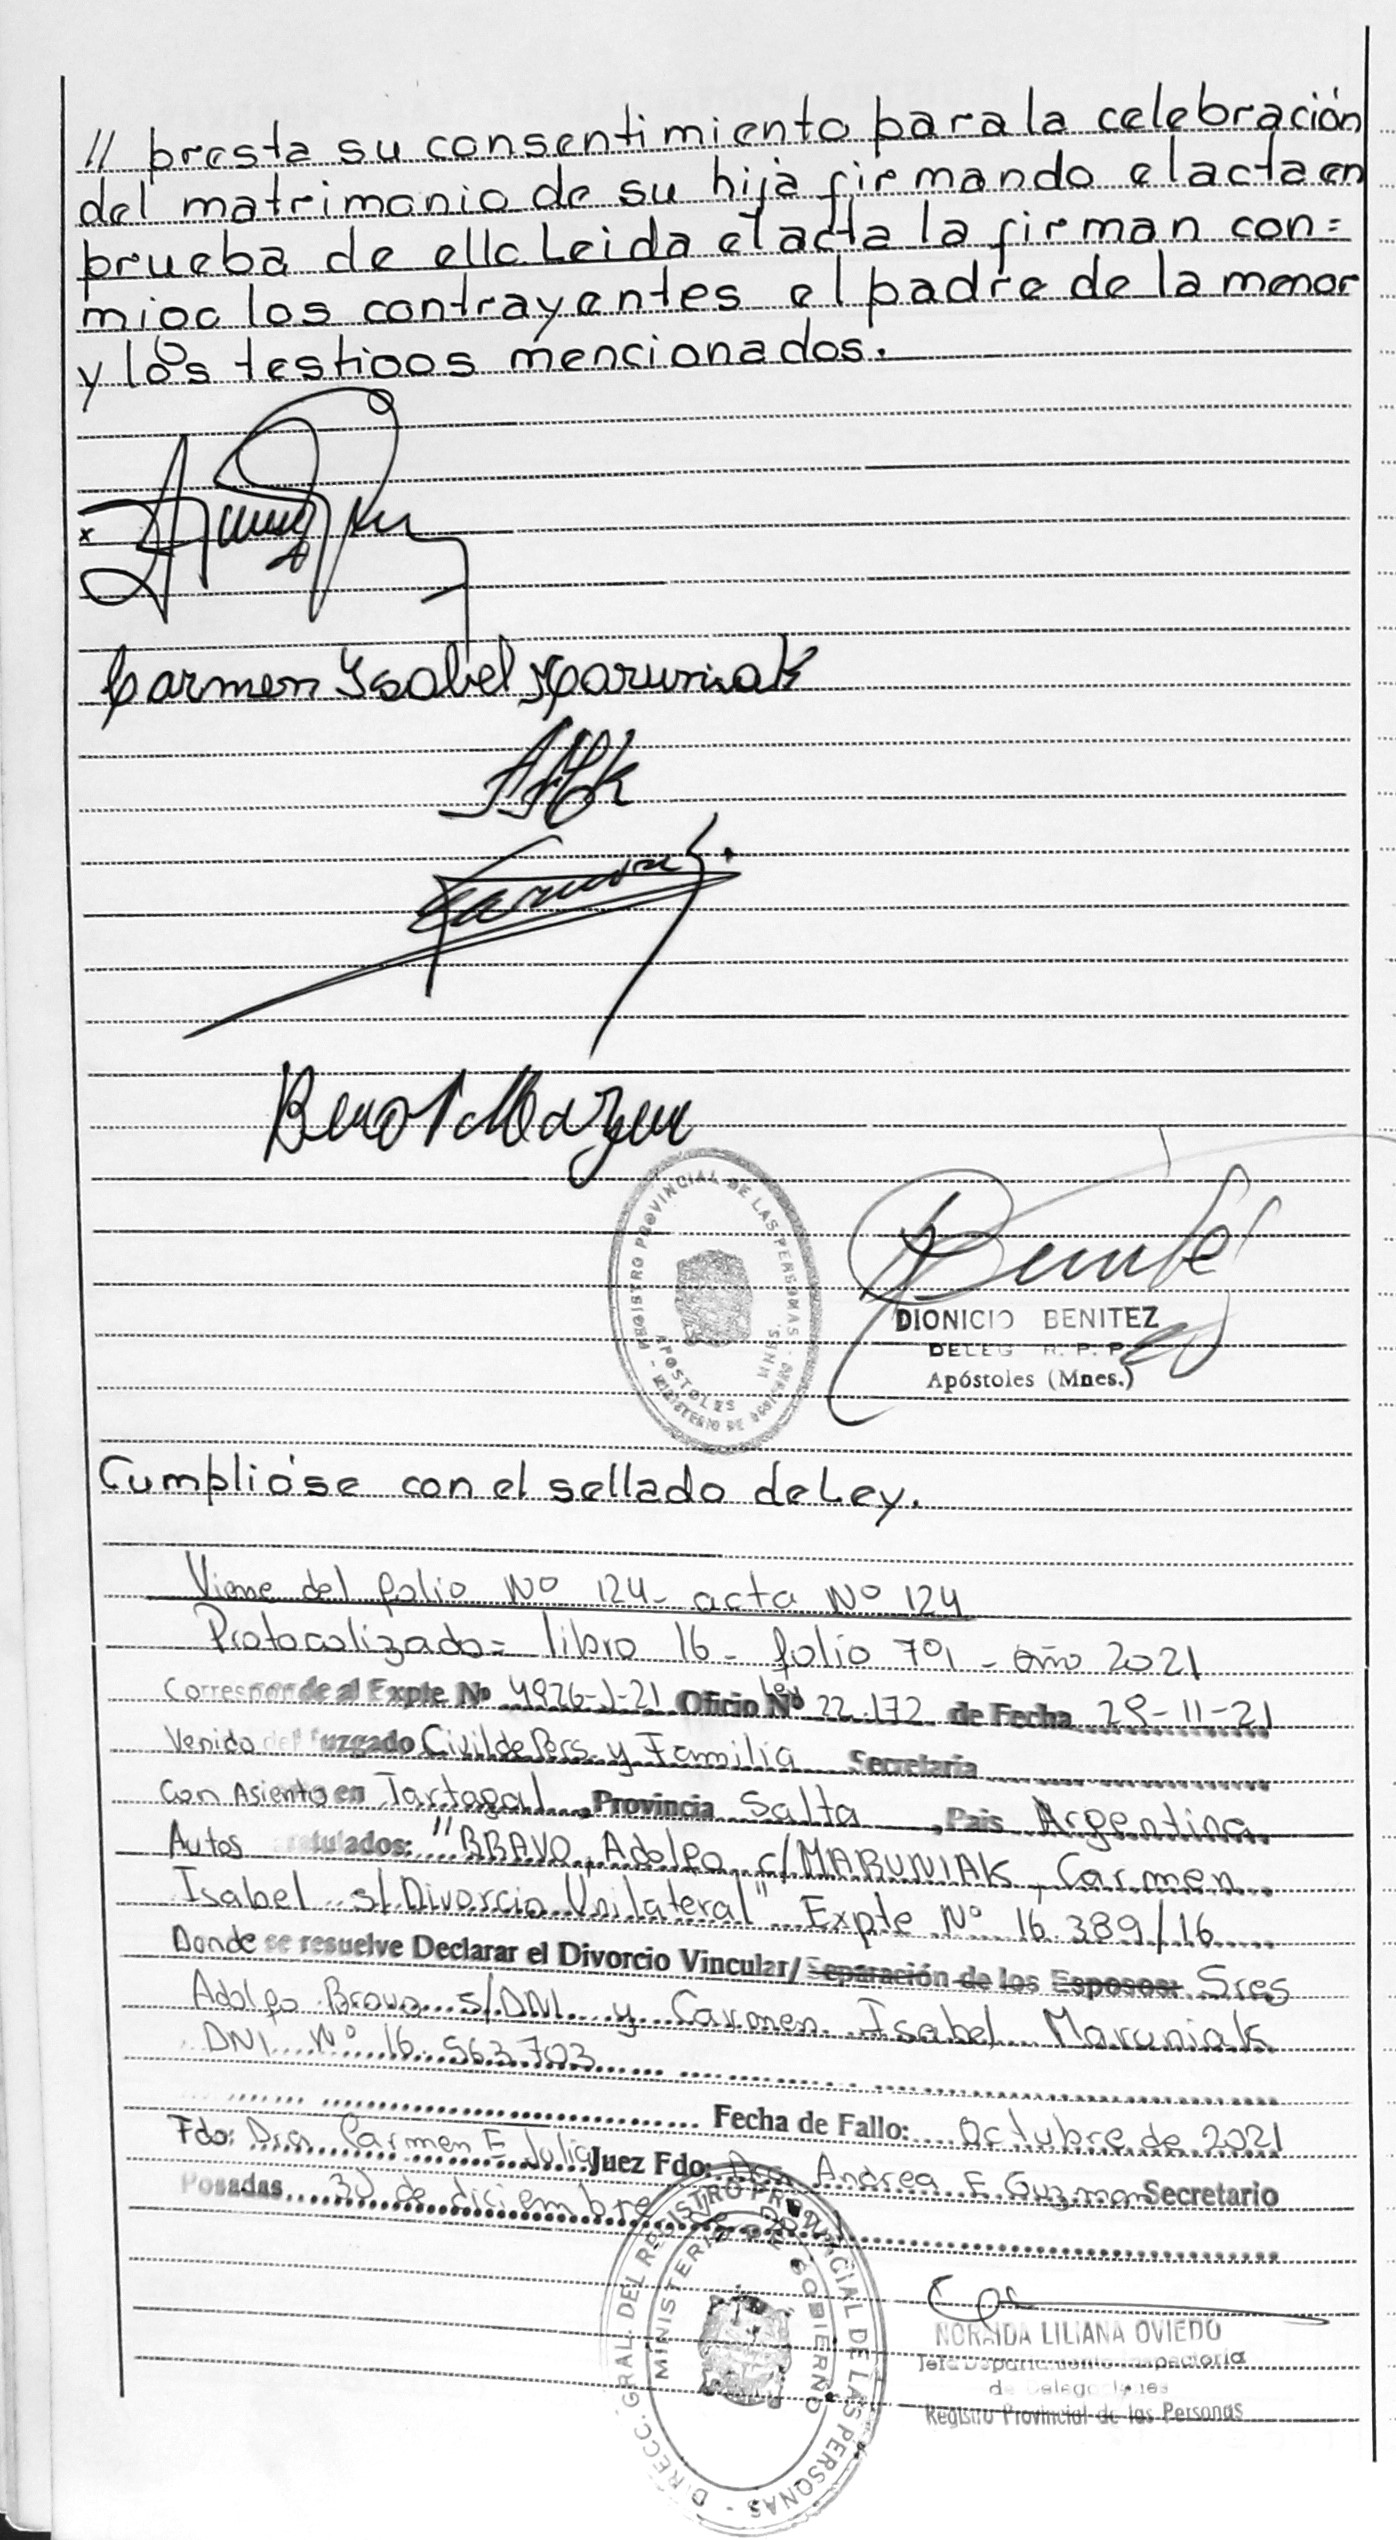 // presta su consentimiento para la celebración
del matrimonio de su hija firmando el acta en
prueba de ello. Leida el acta la firman con=
migo los contrayentes el padre de la menor
y los testigos mencionados.
x
Carmen Isabel Maruniak
REGISTRO PROVINCIAL DE LAS PERSONAS - MINISTERIO DE GOBIERNO -
APOSTOLES MNES.
DIONICIO BENITEZ
DELEG R. P. P.
Apóstoles (Mnes.)
Cumplióse con el sellado de Ley.
Viene del folio Nº 124- acta Nº 124
Protocolizado= libro 16- folio 701 - año 2021
Corresponde al Expte Nº 4926-J-21 Oficio Ley Nº 22.172 de Fecha 29-11-21
Venido del Juzgado Civil de Pers. y Familia Secretaría
Con Asiento en Tartagal, Provincia Salta, Pais Argentina.
Autos aratulados: "BRAVO, Adolfo c/MARUNIAK, Carmen
Isabel s/Divorcio Unilateral" Expte Nº 16.389/16
Donde se resuelve Declarar el Divorcio Vincular/ Separación de los Esposos: Sres
Adolfo Bravo s/DNI. y Carmen Isabel Maruniak
DNI Nº 16.563.703
Fecha de Fallo: Octubre de 2021
Fdo: Dra Carmen E Julia Juez Fdo: Dra Andrea F Guzman Secretario
Posadas 30 de diciembre de 2021
DIRECC. GRAL. DEL REGISTRO PROVINCIAL DE LAS PERSONAS -
MINISTERIO DE GOBIERNO
NORAIDA LILIANA OVIEDO
Jefa Departamento Inspectoria
de Delegaciones
Registro Provincial de las Personas